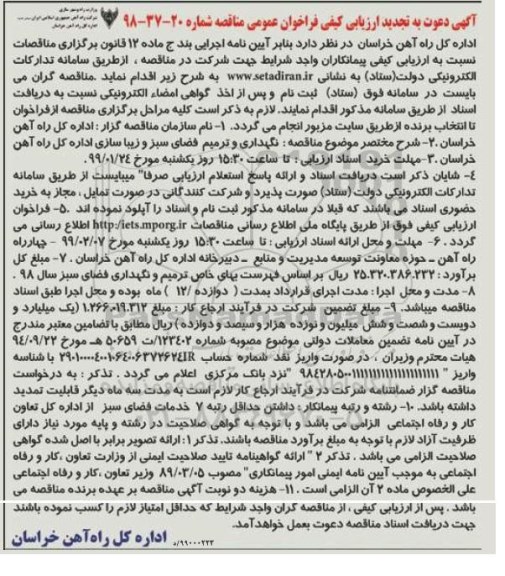 وزارت راه و شهرسازی
شرکت راه آهن جمهوری اسلامی ایران
اداره کل راه آهن خراسان
آگهی دعوت به تجدید ارزیابی کیفی فراخوان عمومی مناقصه شماره ۲۰-۳۷-۹۸
اداره کل راه آهن خراسان در نظر دارد بنابر آیین نامه اجرایی بند ج ماده ۱۲ قانون برگزاری مناقصات
نسبت به ارزیابی کیفی پیمانکاران واجد شرایط جهت شرکت در مناقصه ، ازطریق سامانه تدارکات
الکترونیکی دولت(ستاد) به نشانی www.setadiran.ir به شرح زیر اقدام نماید .مناقصه گران می
بایست در سامانه فوق (ستاد) ثبت نام و پس از اخذ گواهی امضاء الکترونیکی نسبت به دریافت
اسناد از طریق سامانه مذکور اقدام نمایند. لازم به ذکر است کلیه مراحل برگزاری مناقصه ازفراخوان
تا انتخاب برنده ازطریق سایت مزبور انجام می گردد. ۱- نام سازمان مناقصه گزار : اداره کل راه آهن
خراسان .۲- شرح مختصر موضوع مناقصه : نگهداری و ترمیم فضای سبز و زیبا سازی اداره کل راه آهن
خراسان .۳- مهلت خرید اسناد ارزیابی : تا ساعت ۱۵:۳۰ روز یکشنبه مورخ ۹۹/۰۱/۲۴.
۴- شایان ذکر است دریافت اسناد و ارائه پاسخ استعلام ارزیابی صرفا" میبایست از طریق سامانه
تدارکات الکترونیکی دولت (ستاد) صورت پذیرد و شرکت کنندگانی در صورت تمایل ، مجاز به خرید
حضوری اسناد می باشند که قبلا در سامانه مذکور ثبت نام و اسناد را آپلود نموده اند .۵- فراخوان
ارزیابی کیفی فوق از طریق پایگاه ملی اطلاع رسانی مناقصات http:/iets.mporg.ir اطلاع رسانی می
گردد . ۶- مهلت و محل ارائه اسناد ارزیابی : تا ساعت ۱۵:۳۰ روز یکشنبه مورخ ۹۹/۰۲/۰۷ - چهارراه
راه آهن ـ حوزه معاونت توسعه مدیریت و منابع ـ دبیرخانه اداره کل راه آهن خراسان . ۷- مبلغ کل
برآورد : ۲۵.۳۲۰.۳۸۶.۲۳۲ ریال بر اساس فهرست بهای خاص ترمیم و نگهداری فضای سبز سال ۹۸ .
۸- مدت و محل اجرا : مدت اجرای قرارداد بمدت ( دوازده /۱۲ ) ماه بوده و محل اجرا طبق اسناد
مناقصه میباشد. ۹- مبلغ تضمین شرکت در فرآیند ارجاع کار : مبلغ ۱.۲۶۶.۰۱۹.۳۱۲ (یک میلیارد و
دویست و شصت و شش میلیون و نوزده هزار و سیصد و دوازده ) ریال مطابق با تضامین معتبر مندرج
در آیین نامه تضمین معاملات دولتی موضوع مصوبه شماره ۱۲۳۴۰۲/ت ۵۰۶۵۹ هـ مورخ ۹۴/۰۹/۲۲
هیات محترم وزیران ، در صورت واریز نقد شماره حساب با شناسه
واریز " " نزد بانک مرکزی اعلام می گردد . تذکر : به درخواست
مناقصه گزار ضمانتنامه شرکت در فرآیند ارجاع کار لازم است به مدت سه ماه دیگر قابلیت تمدید
داشته باشد. ۱۰- رشته و رتبه پیمانکار : داشتن حداقل رتبه ۷ خدمات فضای سبز از اداره کل تعاون
کار و رفاه اجتماعی الزامی می باشد و با توجه به گواهی صلاحیت در رشته و پایه مورد نیاز دارای
ظرفیت آزاد لازم با توجه به مبلغ برآورد مناقصه باشند. تذکر ۱ : ارائه تصویر برابر با اصل شده گواهی
صلاحیت الزامی می باشد . تذکر ۲ " ارائه گواهینامه تایید صلاحیت ایمنی از وزارت تعاون ،کار و رفاه
اجتماعی به موجب آیین نامه ایمنی امور پیمانکاری" مصوب ۸۹/۰۳/۰۵ وزیر تعاون ،کار و رفاه اجتماعی
علی الخصوص ماده ۲ آن الزامی است . ۱۱- هزینه دو نوبت آگهی مناقصه بر عهده برنده مناقصه می
باشد . پس از ارزیابی کیفی ، از مناقصه گران واجد شرایط که حداقل امتیاز لازم را کسب نموده باشند
جهت دریافت اسناد مناقصه دعوت بعمل خواهدآمد.
۹۹۰۰۰۲۲۳/ه اداره کل راه‌آهن خراسان